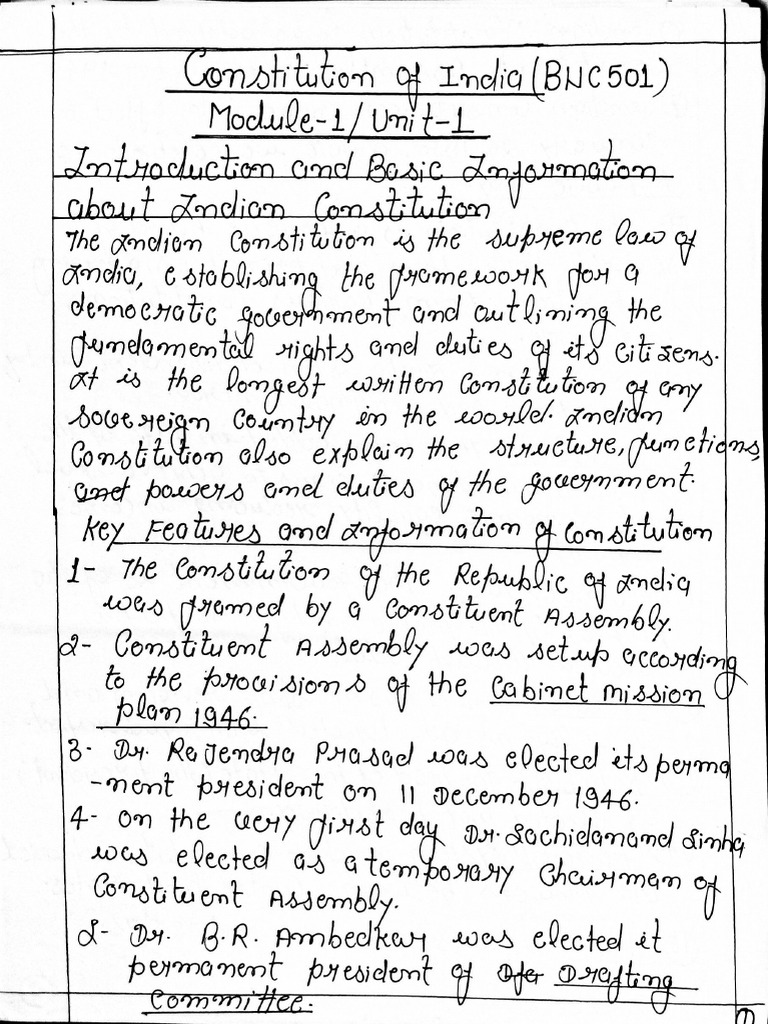 Constitution of India (BNC501)
Module-1/Unit-1
Introduction and Basic Information
about Indian Constitution
The Indian Constitution is the supreme law of
India, establishing the framework for a
democratic government and outlining the
fundamental rights and duties of its citizens.
It is the longest written Constitution of any
sovereign country in the world. Indian
Constitution also explain the structure, functions,
and powers and duties of the government.
Key Features and Information of Constitution
1- The Constitution of the Republic of India
was framed by a Constituent Assembly.
2- Constituent Assembly was setup according
to the provisions of the Cabinet mission
plan 1946.
3- Dr. Rajendra Prasad was elected its perma
-nent president on 11 December 1946.
4- On the very first day Dr. Sachidanand Sinha
was elected as a temporary Chairman of
Constituent Assembly.
5- Dr. B.R. Ambedkar was elected it
permanent president of Drafting
Committee.
1